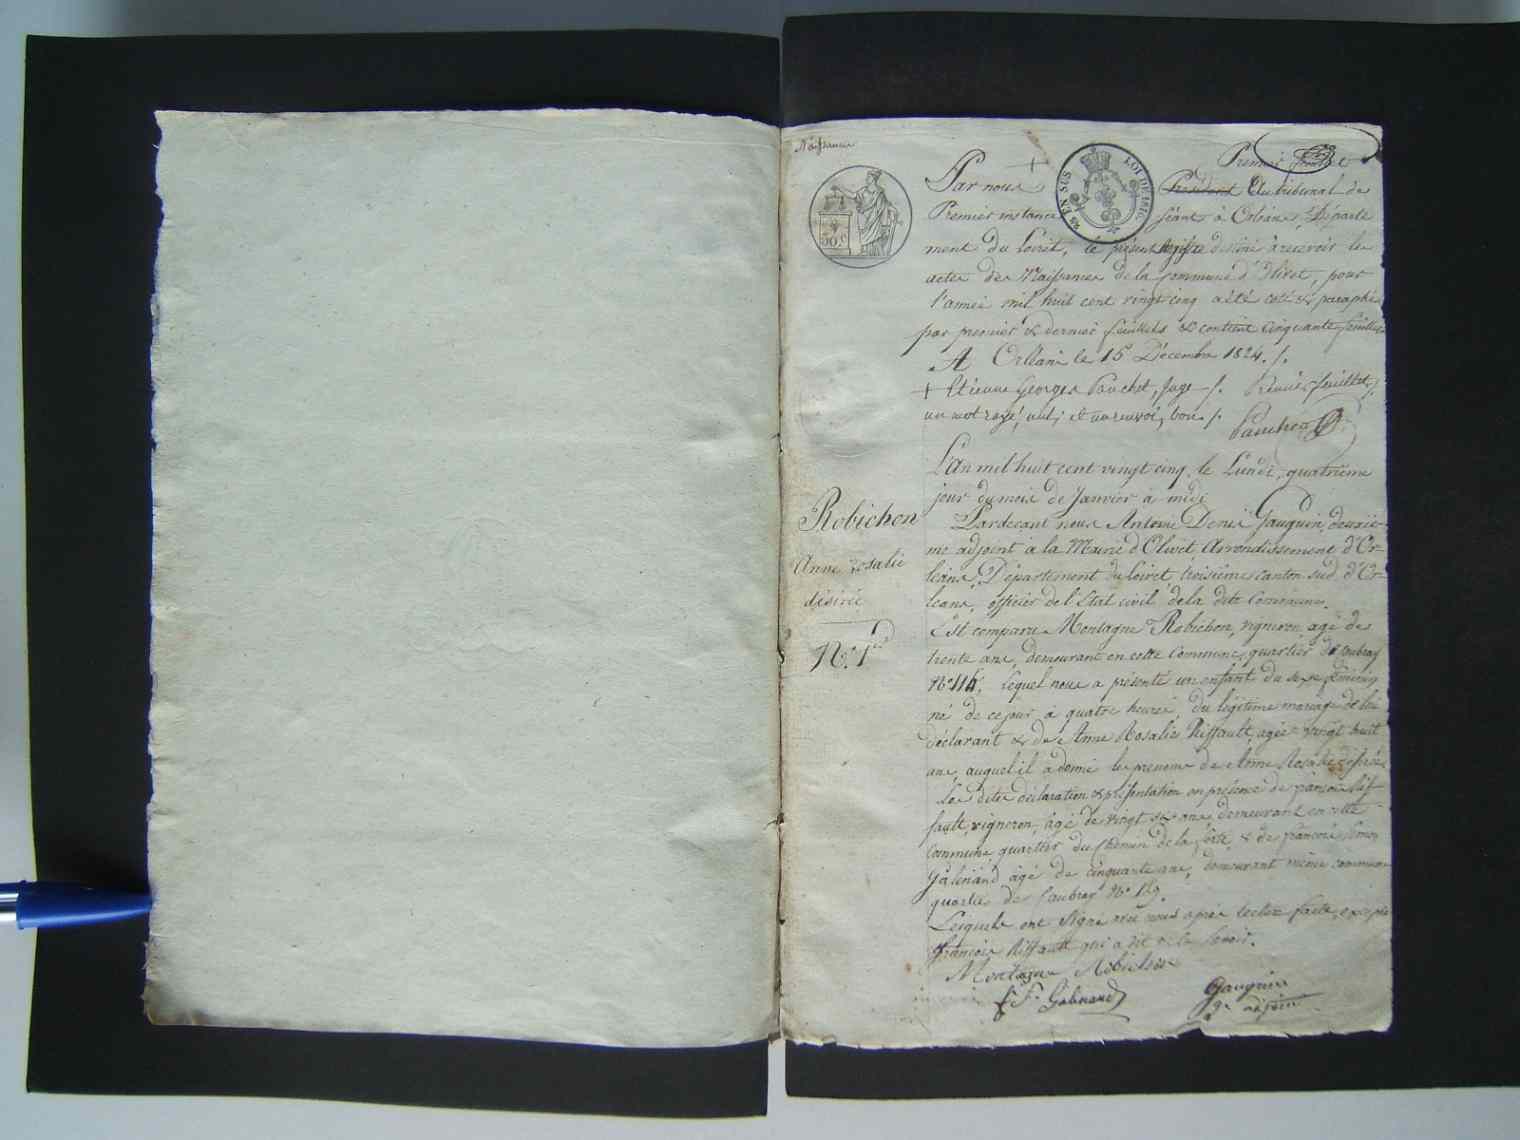 Naissances
Premier feuillet
Par nous + Président au tribunal de
Premier instance séant à Orléans, Départe
ment du Loiret, le présent Registre destiné à recevoir les
actes de Naissances de la commune d'Olivet, pour
l'année mil huit cent vingt cinq a été coté & paraphé
par premier & dernier feuillets & contient cinquante feuillets
A Orléans le 15 Décembre 1824. /.
+ Etienne Georges Pauchet, Juge /. Premier feuillet /.
un mot rayé, nul; et un renvoi, bon /.
L'An mil huit cent vingt cinq le Lundi, quatrième
jour du mois de Janvier à midi
Robichon
Anne rosalie
désirée
N.° 1er
Pardevant nous Antoine Denis Gauguin, deuxie-
me adjoint à la Mairie d'Olivet, Arrondissement d'Or-
léans, Département du Loiret, troisième canton sud d'Or-
léans, officier de l'Etat civil de la dite Commune.
Est comparu Montagne Robichon, vigneron, agé de
trente ans, demeurant en cette Commune, quartier de Caubray
N° 114, lequel nous a présenté un enfant du sexe féminin
né de ce jour à quatre heures, du légitime mariage de lui
déclarant & de Anne Rosalie Riffault, agée vingt huit
ans, auquel il a donné les prenoms de Anne Rosalie désirée
Les dites déclaration & présentation en présence de françois Rif-
fault, vigneron, âgé de vingt six ans demeurant en cette
Commune, quartier du Chemin de la forte, & de françois Simon
Galinand âgé de cinquante ans, demeurant même commune
quartier de Caubray N° 189.
Lesquels ont signé avec nous après lecture faite, excepté
françois Riffault qui a dit ne le savoir.
Montagne Robichon
f. S. Galinand
Gauguin
adjoint